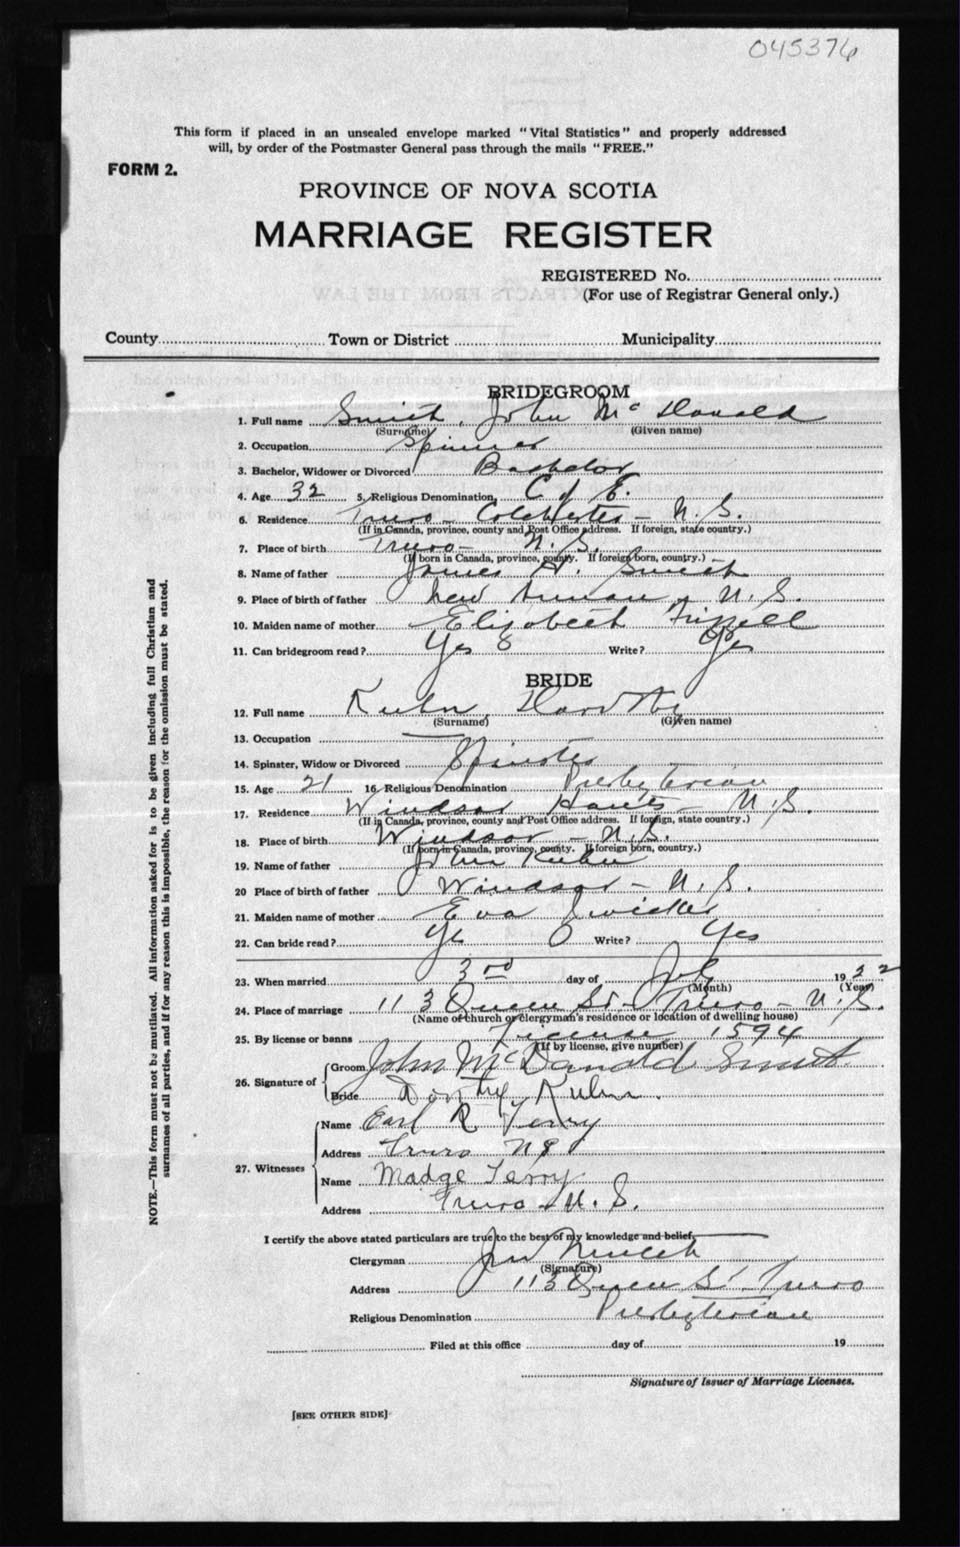 045376
This form if placed in an unsealed envelope marked "Vital Statistics" and properly addressed
will, by order of the Postmaster General pass through the mails "FREE."
FORM 2.
PROVINCE OF NOVA SCOTIA
MARRIAGE REGISTER
REGISTERED No.
(For use of Registrar General only.)
County Town or District Municipality
BRIDEGROOM
1. Full name Smith, John McDonald
(Surname) (Given name)
2. Occupation Spinner
3. Bachelor, Widower or Divorced Bachelor
4. Age 32 5. Religious Denomination C of E.
6. Residence Truro - Colchester - N.S.
(If in Canada, province, county and Post Office address. If foreign, state country.)
7. Place of birth Truro - N.S.
(If born in Canada, province, county. If foreign born, country.)
8. Name of father James H. Smith
9. Place of birth of father New Annan, N.S.
10. Maiden name of mother Elizabeth
11. Can bridegroom read? Yes Write? Yes
BRIDE
12. Full name Kuhn, Dorothy
(Surname) (Given name)
13. Occupation —
14. Spinster, Widow or Divorced Spinster
15. Age 21 16. Religious Denomination Presbyterian
17. Residence Windsor Hants - N.S.
(If in Canada, province, county and Post Office address. If foreign, state country.)
18. Place of birth Windsor - N.S.
(If born in Canada, province, county. If foreign born, country.)
19. Name of father John Kuhn
20 Place of birth of father Windsor - N.S.
21. Maiden name of mother Eva Swicker
22. Can bride read? Yes Write? Yes
23. When married 3rd day of July 1932
(Month) (Year)
24. Place of marriage 113 Queen St - Truro - N.S.
(Name of church or clergyman's residence or location of dwelling house)
25. By license or banns License 1594
(If by license, give number)
26. Signature of Groom John McDanald Smith
Bride Dorothy Kuhn.
27. Witnesses Name Earl R Terry
Address Truro NS
Name Madge Terry
Address Truro - N.S.
I certify the above stated particulars are true to the best of my knowledge and belief.
Clergyman
(Signature)
Address 113 Queen St Truro
Religious Denomination Presbyterian
Filed at this office day of 19
Signature of Issuer of Marriage Licenses.
[SEE OTHER SIDE]
NOTE.—This form must not be mutilated. All information asked for is to be given including full Christian and
surnames of all parties, and if for any reason this is impossible, the reason for the omission must be stated.